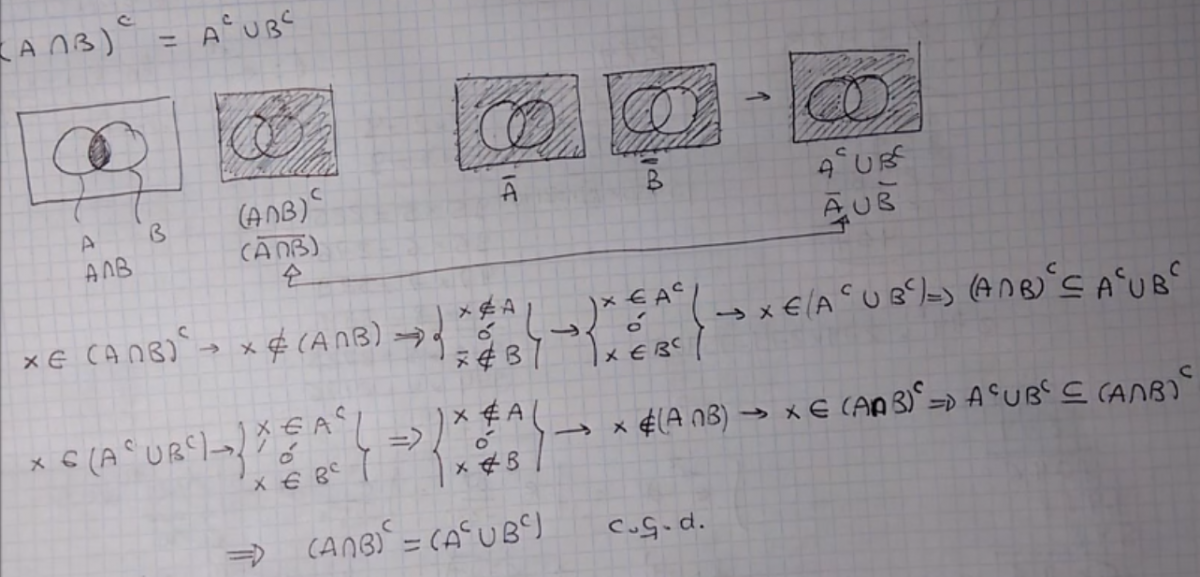 (A ∩ B)ᶜ = Aᶜ ∪ Bᶜ
A B
A∩B
(A∩B)ᶜ
(A̅∩̅B̅)
A̅
B̅
→
Aᶜ ∪ Bᶜ
A̅ ∪ B̅
x ∈ (A∩B)ᶜ → x ∉ (A∩B) ⇒ { x ∉ A ó x ∉ B } → { x ∈ Aᶜ ó x ∈ Bᶜ } → x ∈ (Aᶜ ∪ Bᶜ) ⇒ (A∩B)ᶜ ⊆ Aᶜ ∪ Bᶜ
x ∈ (Aᶜ ∪ Bᶜ) → { x ∈ Aᶜ ó x ∈ Bᶜ } ⇒ { x ∉ A ó x ∉ B } → x ∉ (A∩B) → x ∈ (A∩B)ᶜ ⇒ Aᶜ ∪ Bᶜ ⊆ (A∩B)ᶜ
⇒ (A∩B)ᶜ = (Aᶜ ∪ Bᶜ) c.q.d.